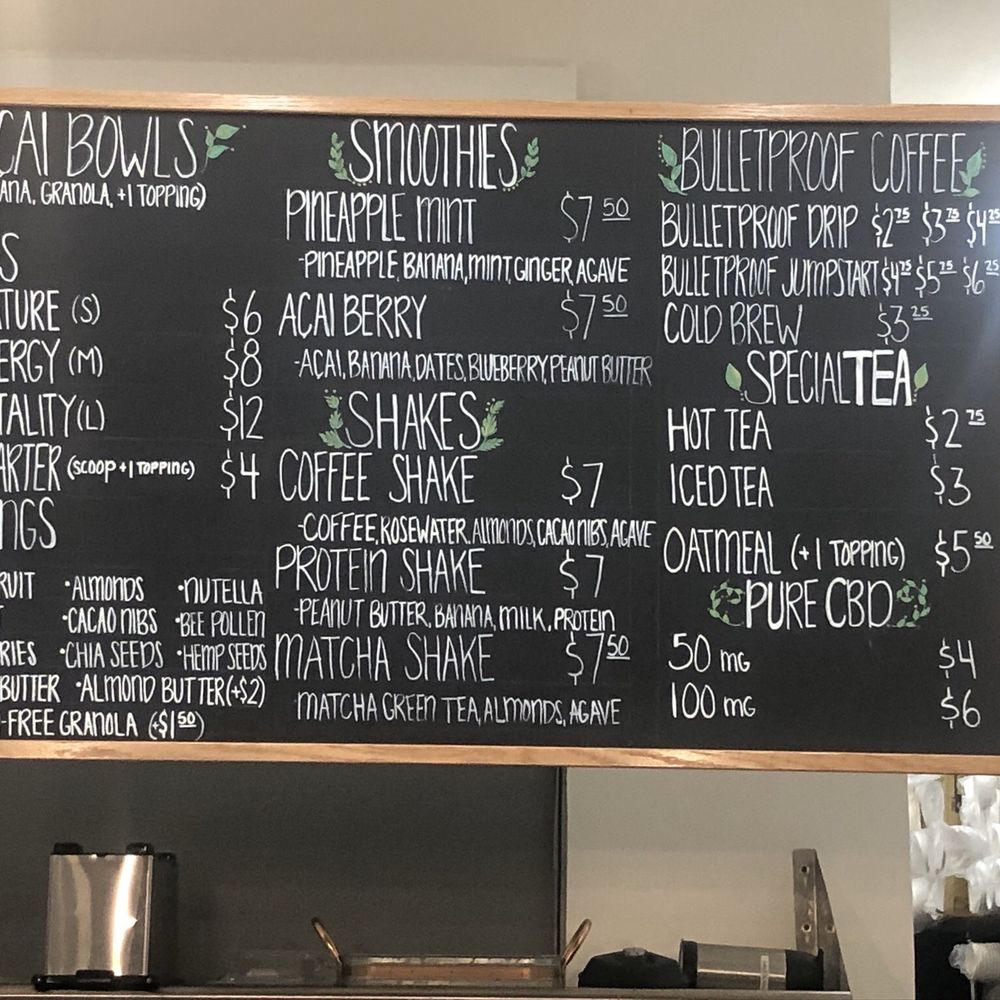 CAI BOWLS
ANA, GRANOLA, +1 TOPPING)
S
TURE (S) $6
ERGY (M) $8
TALITY (L) $12
ARTER (SCOOP +1 TOPPING) $4
NGS
RUIT •ALMONDS •NUTELLA
T •CACAO NIBS •BEE POLLEN
RIES •CHIA SEEDS •HEMP SEEDS
BUTTER •ALMOND BUTTER (+$2)
-FREE GRANOLA (+$1.50)
SMOOTHIES
PINEAPPLE MINT $7 50
-PINEAPPLE, BANANA, MINT, GINGER, AGAVE
ACAI BERRY $7 50
-AÇAI, BANANA, DATES, BLUEBERRY, PEANUT BUTTER
SHAKES
COFFEE SHAKE $7
-COFFEE, ROSEWATER, ALMONDS, CACAO NIBS, AGAVE
PROTEIN SHAKE $7
-PEANUT BUTTER, BANANA, MILK, PROTEIN
MATCHA SHAKE $7 50
-MATCHA GREEN TEA, ALMONDS, AGAVE
BULLETPROOF COFFEE
BULLETPROOF DRIP $2 75 $3 75 $4 25
BULLETPROOF JUMPSTART $4 75 $5 75 $6 25
COLD BREW $3 25
SPECIALTEA
HOT TEA $2 75
ICED TEA $3
OATMEAL (+1 TOPPING) $5 50
PURE CBD
50 MG $4
100 MG $6